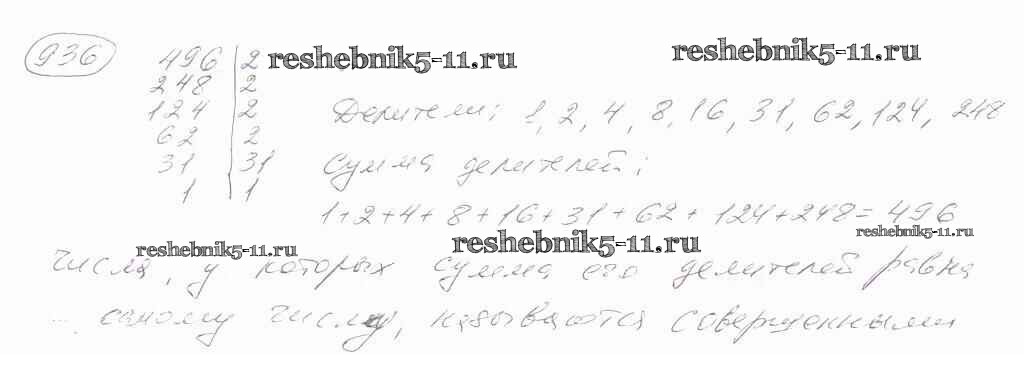 936
496 | 2 reshebnik5-11.ru reshebnik5-11.ru
248 | 2
124 | 2 Делители: 1, 2, 4, 8, 16, 31, 62, 124, 248
62 | 2
31 | 31 Сумма делителей:
1 | 1
1+2+4+8+16+31+62+124+248=496
reshebnik5-11.ru reshebnik5-11.ru reshebnik5-11.ru
числа, у которых сумма его делителей равна
... самому числу, называются совершенными